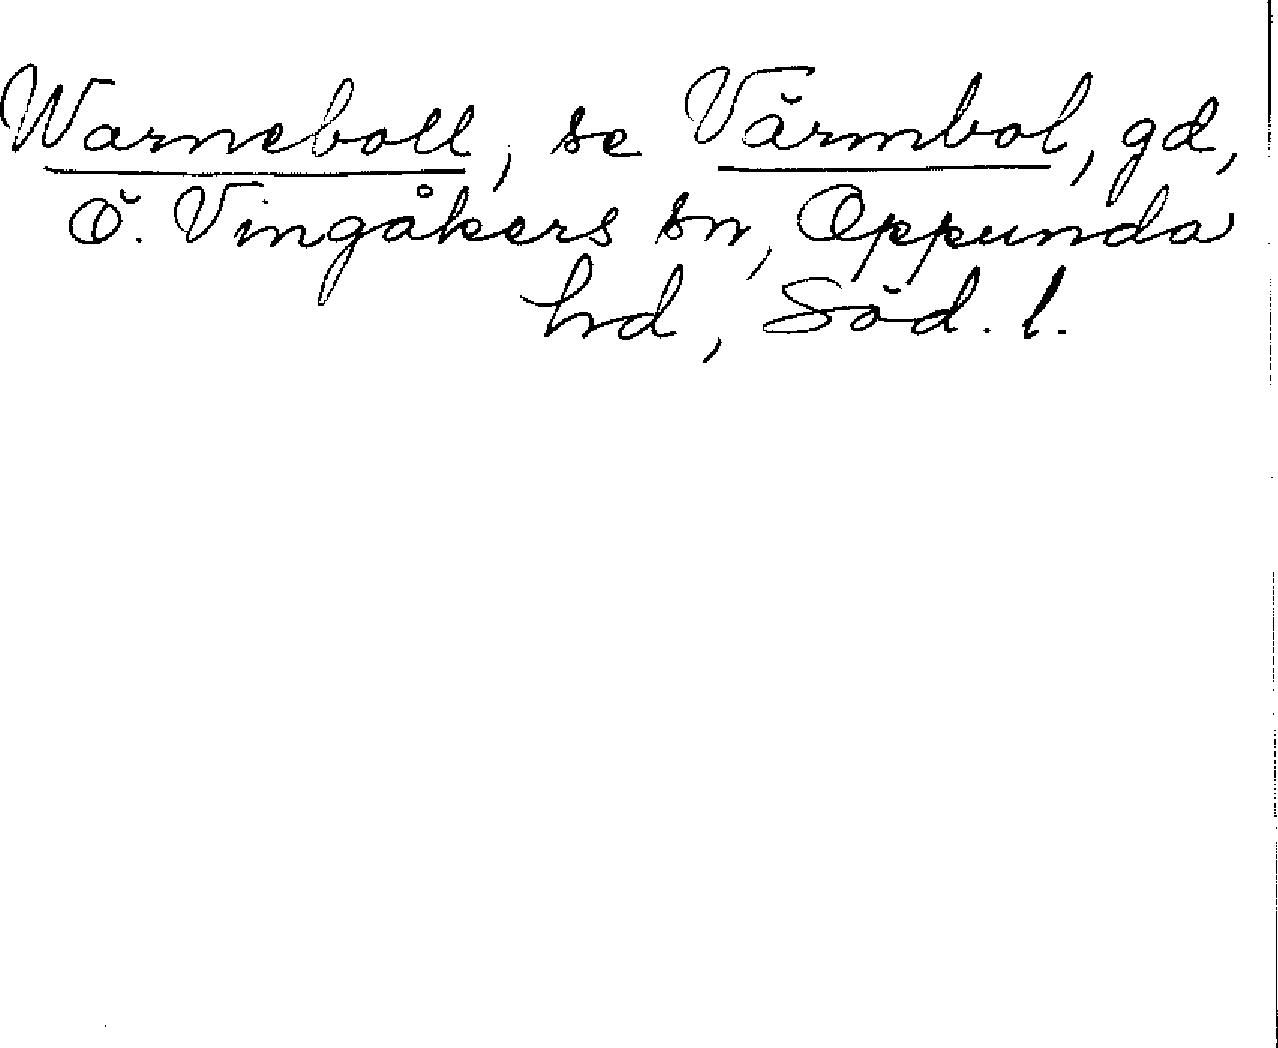 Warneboll, se Värmbol, gd,
Ö. Vingåkers sn, Oppunda
hd, Söd. l.